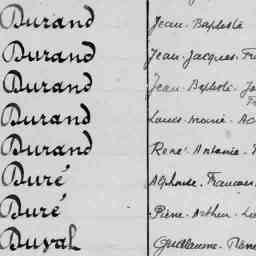 Durand Jean-Baptiste
Durand Jean-Jacques-
Durand Jean-Baptiste-
Durand Louis-Marie-
Durand René-Antonin-
Duré Alphonse-François
Duré Pierre-Arthur-
Duval Guillaume-